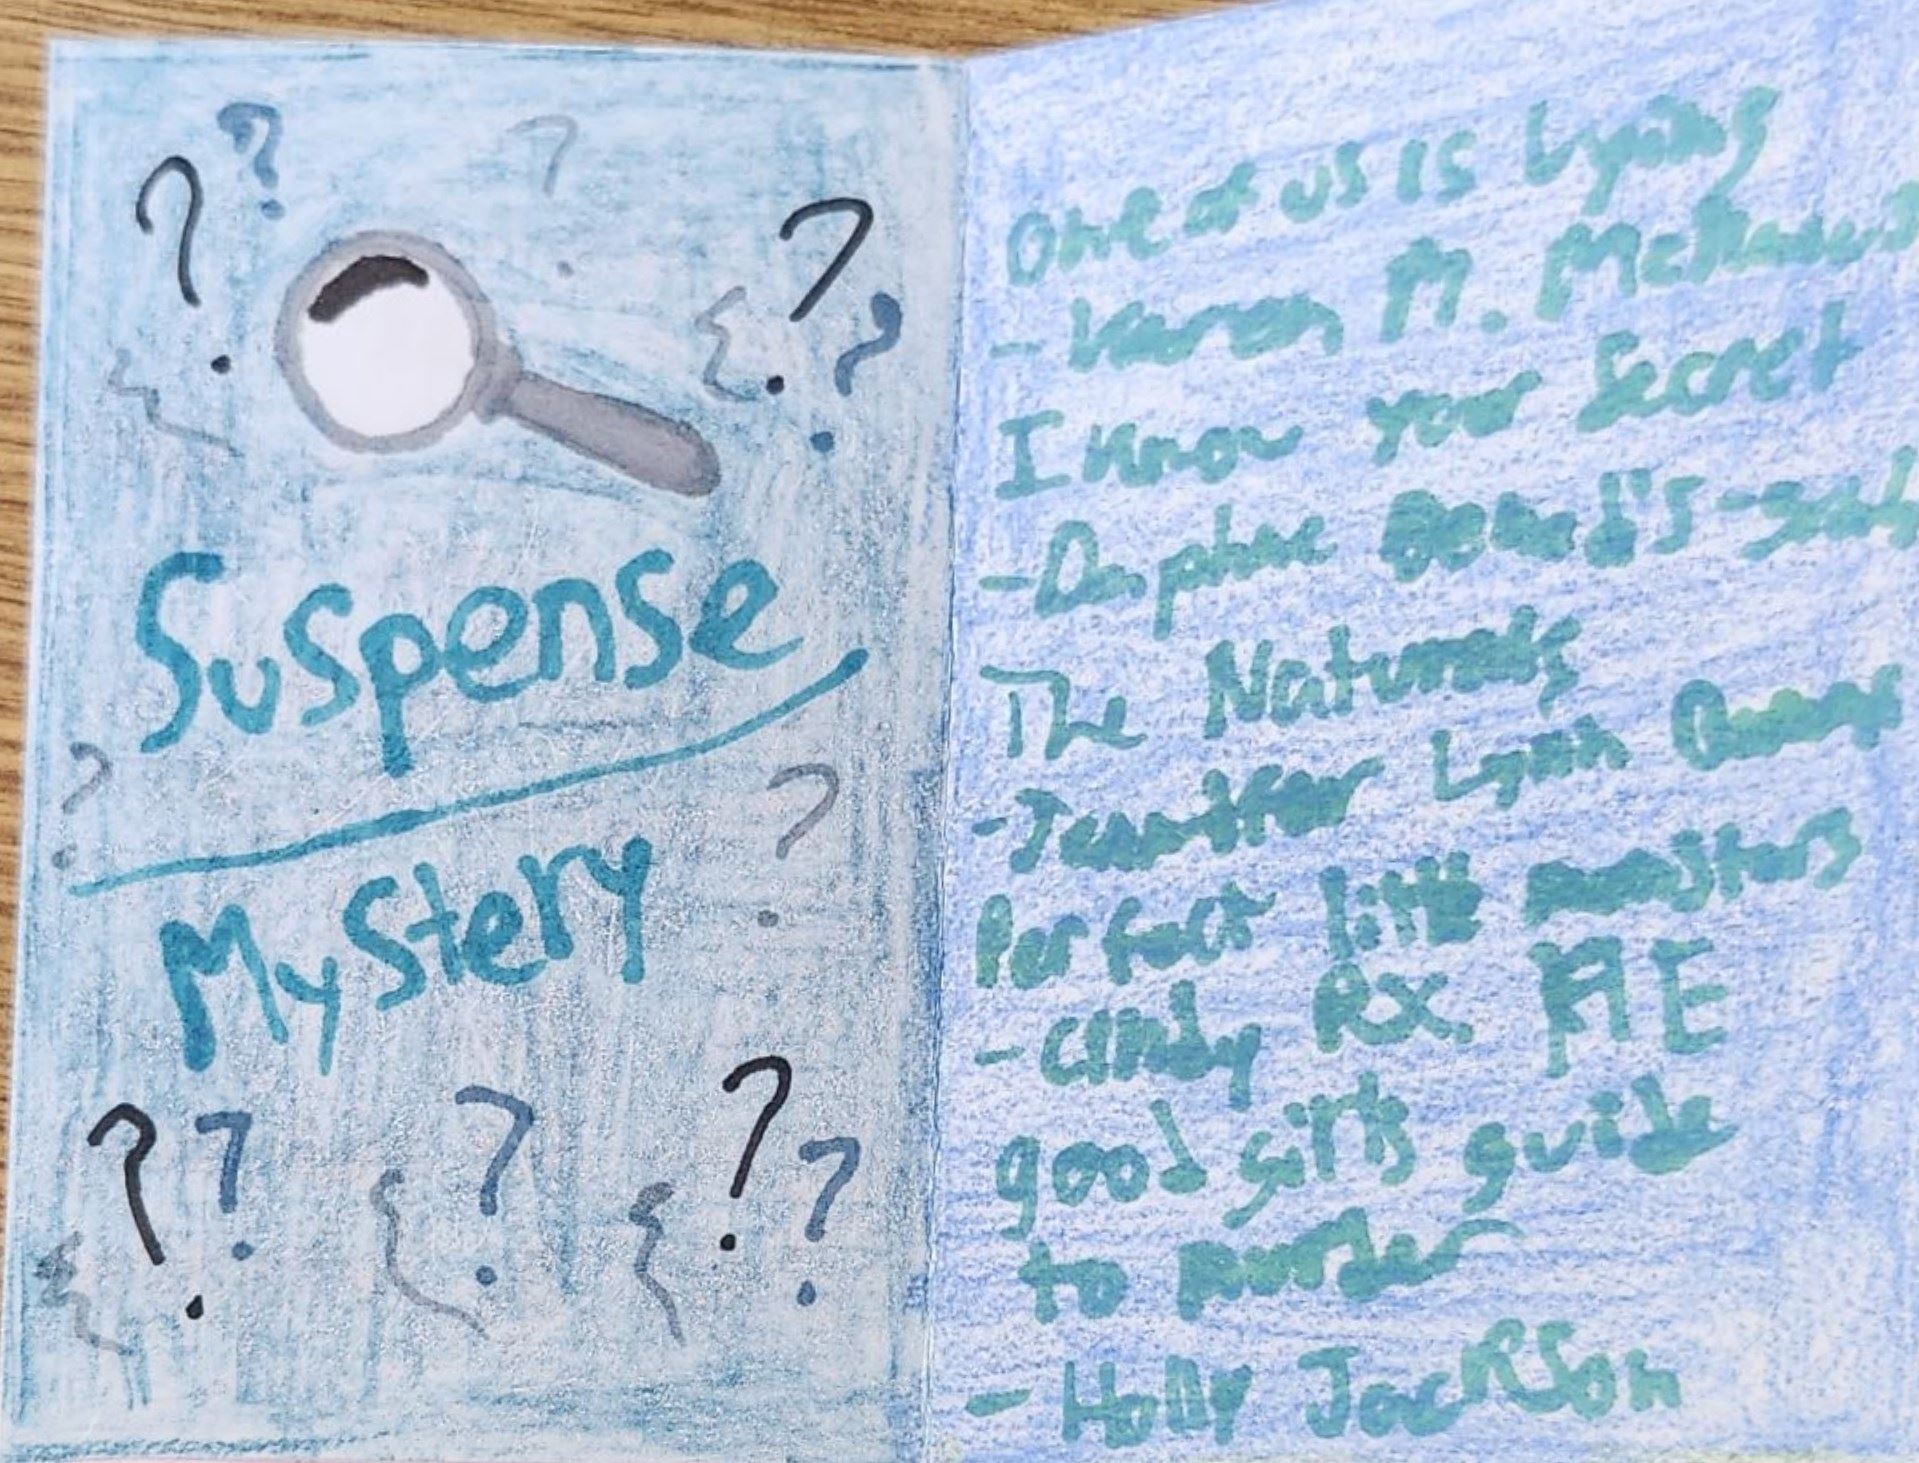 Suspense
Mystery
One of us is Lying
- Karen M. McManus
I know your Secret
- Daphne
The Naturals
- Jennifer Lynn
Perfect little monsters
- Cindy RX HE
good girls guide
to murder
- Holly JacRSon